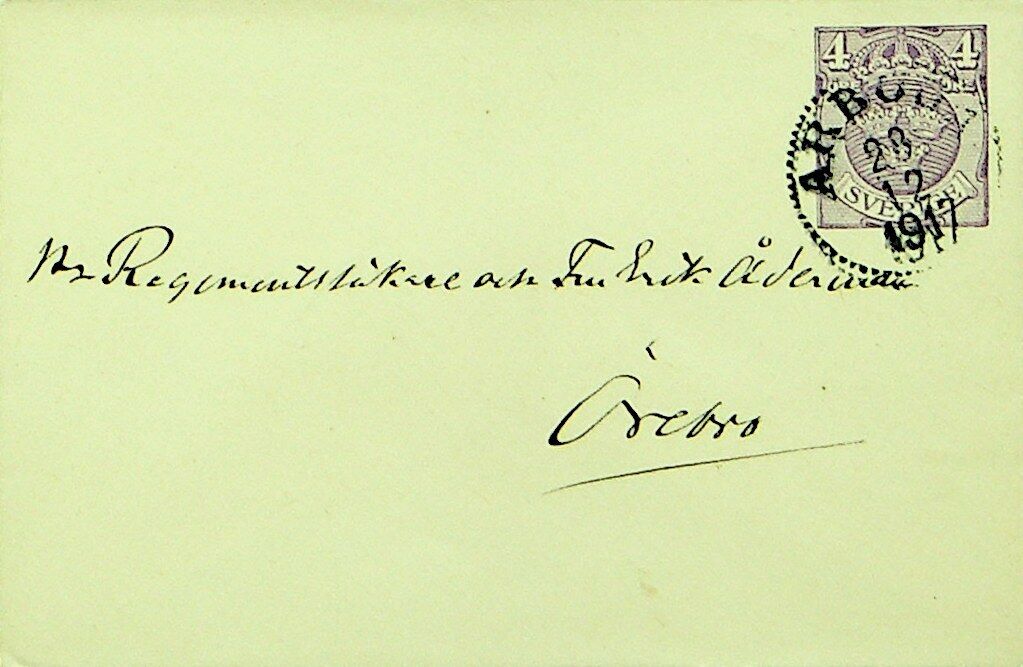 4 4
ÖRE
SVERIGE
ARBOGA
23
12
1917
Hr Regementsläkare och Fru Erik Åderman
Örebro